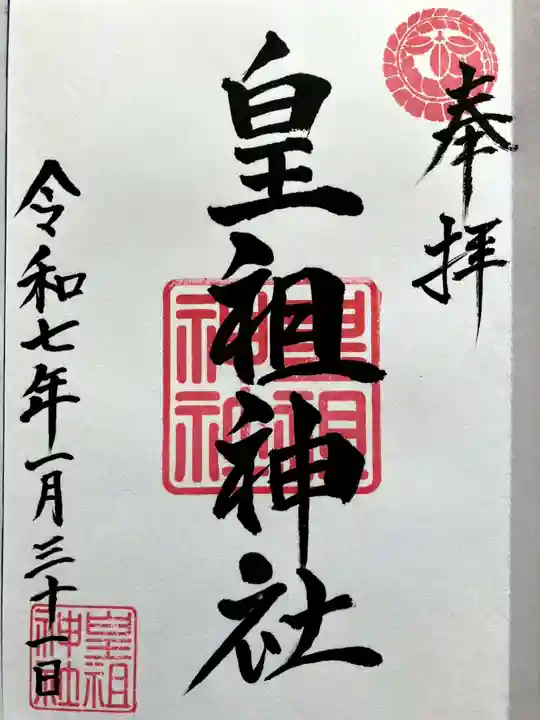 奉拝
皇祖神社
皇祖
神社
令和七年一月三十一日
皇祖
神社